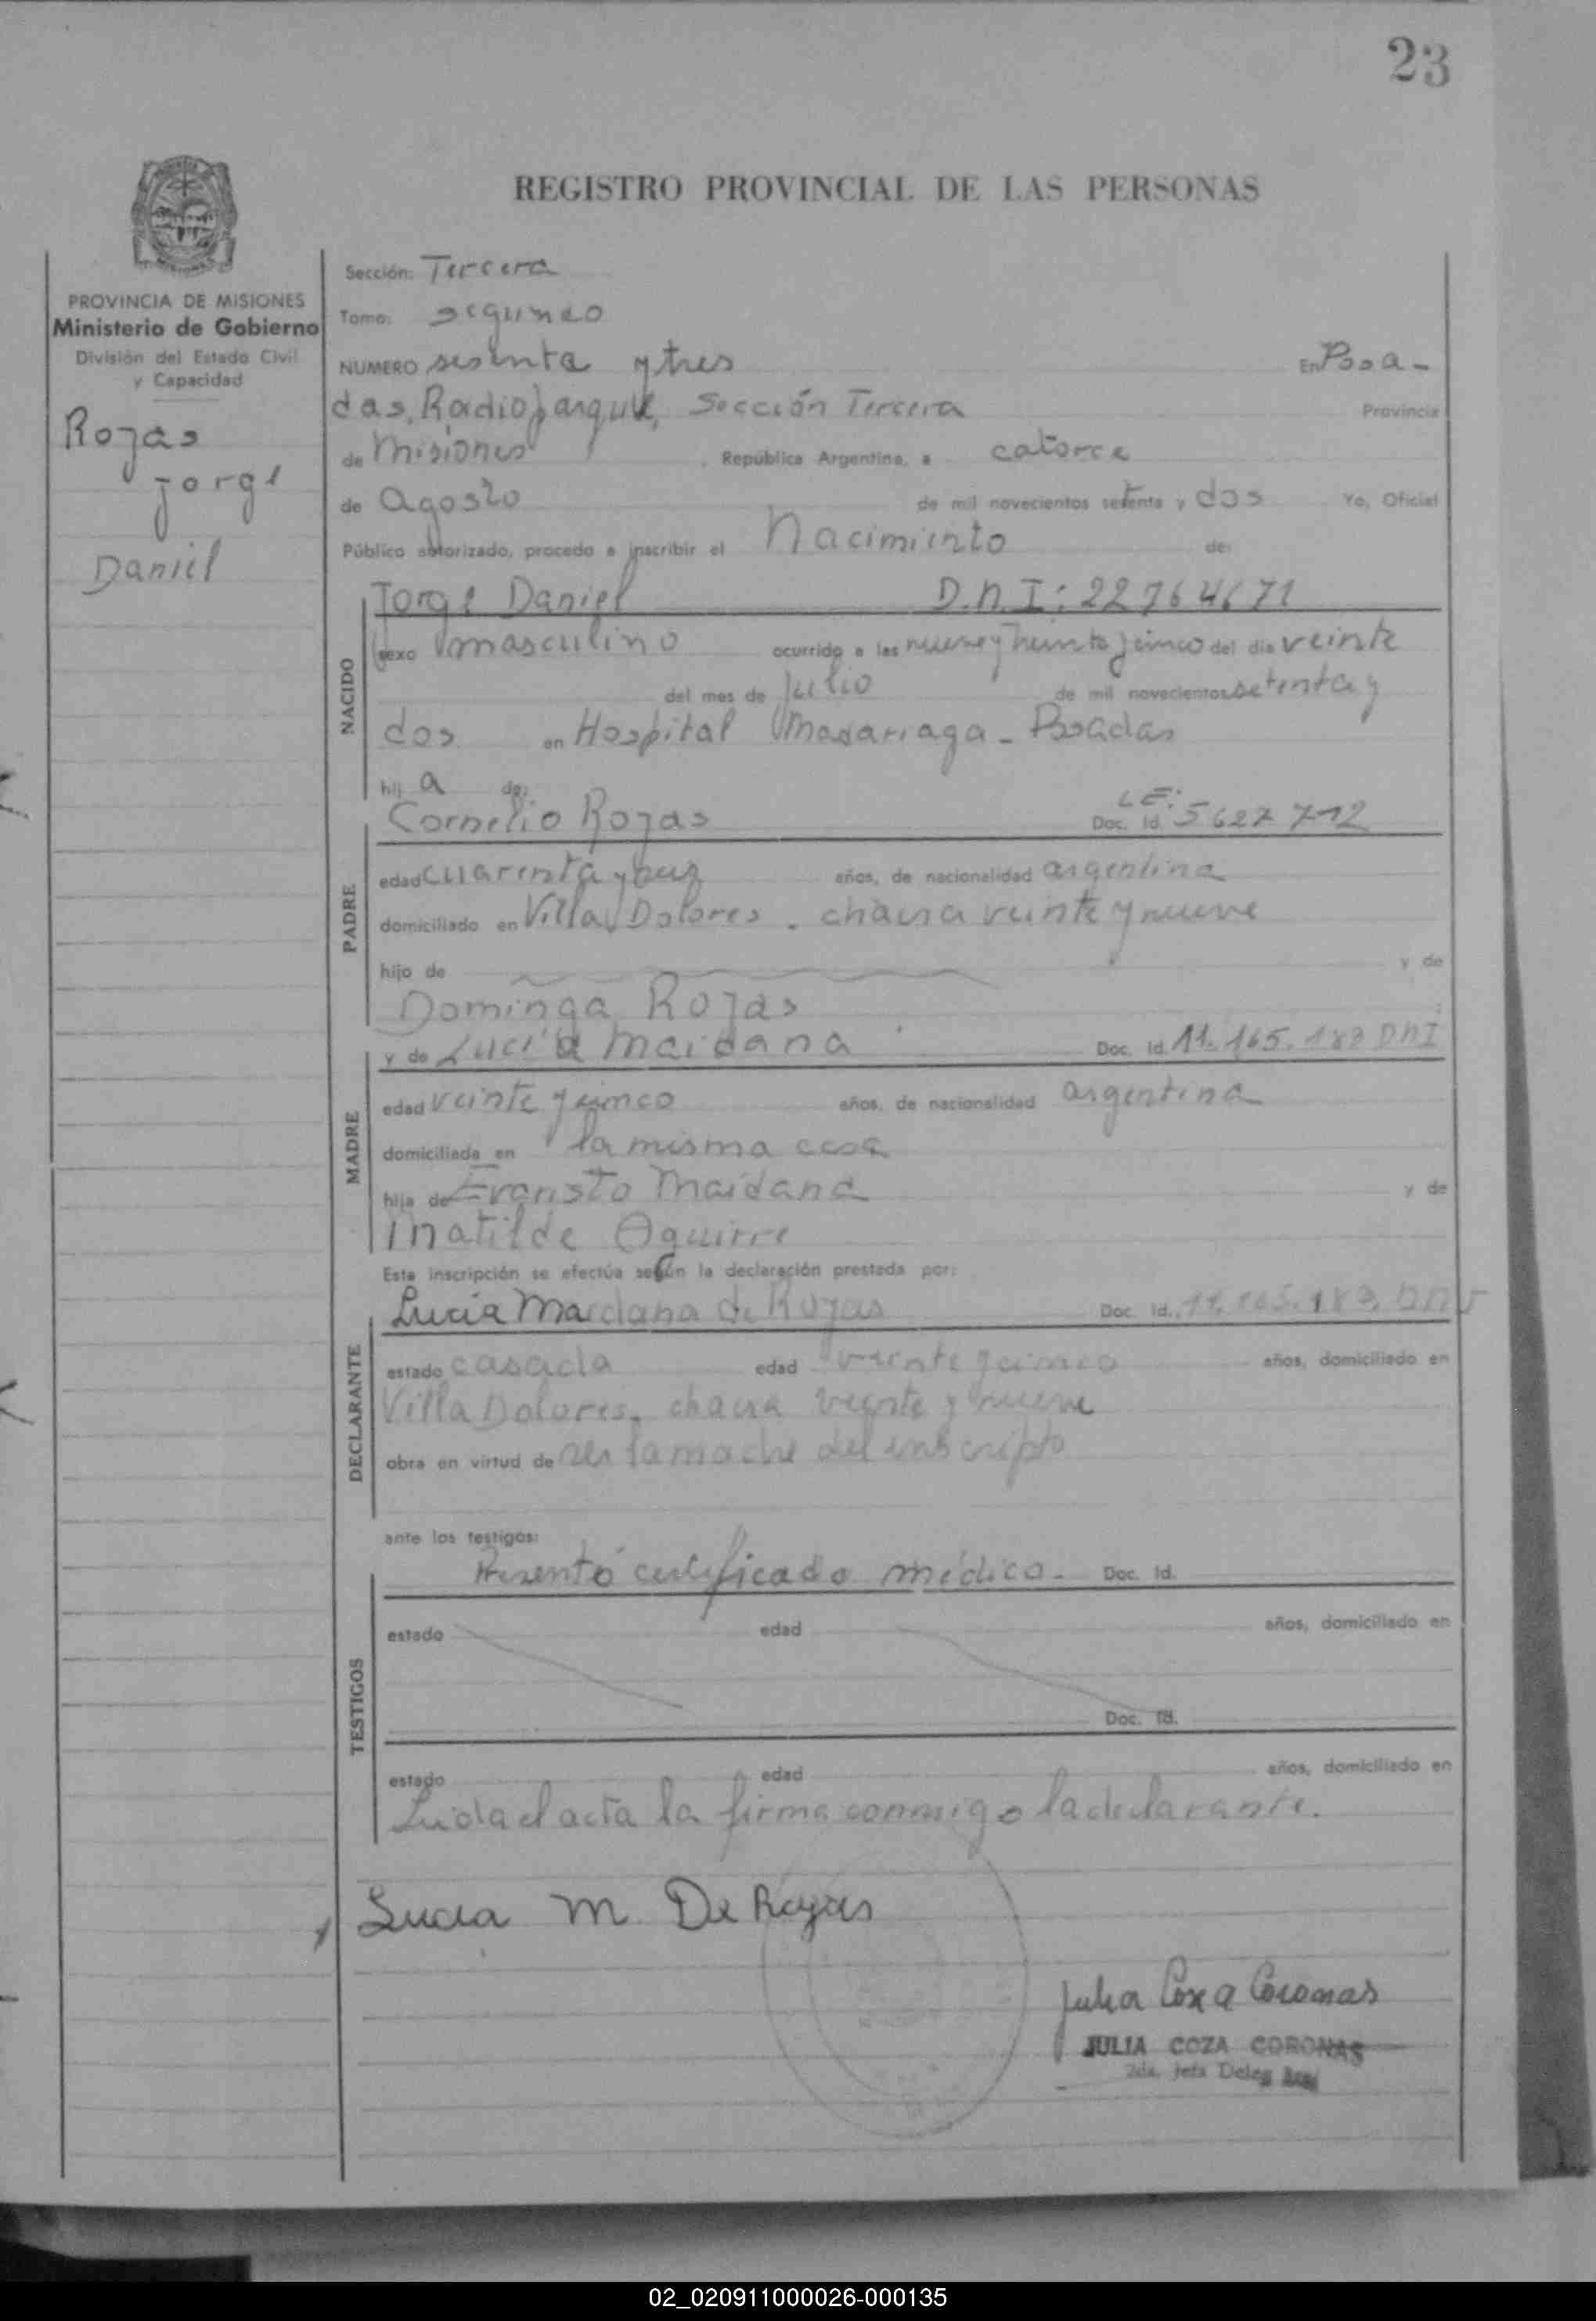 23
REGISTRO PROVINCIAL DE LAS PERSONAS
PROVINCIA DE MISIONES
Ministerio de Gobierno
División del Estado Civil
y Capacidad
Rojas
Jorge
Daniel
Sección: Tercera
Tomo: segundo
NUMERO sesenta y tres En Posa-
das, Radio parque, Sección Tercera Provincia
de Misiones, República Argentina, a catorce
de Agosto de mil novecientos setenta y dos Yo, Oficial
Público autorizado, procedo a inscribir el Nacimiento de:
NACIDO
Jorge Daniel D.N.I: 22764671
sexo masculino ocurrido a las nueve y treinta y cinco del día veinte
del mes de Julio de mil novecientos setenta y
dos en Hospital Madariaga - Posadas
hij a de:
PADRE
Cornelio Rojas Doc. Id. LE: 5627712
edad cuarenta y años, de nacionalidad argentina
domiciliado en Villa Dolores. chacra veinte y nueve
hijo de y de
Dominga Rojas
MADRE
y de Lucía Maidana Doc. Id. 11.165.183 DNI
edad veinte y cinco años, de nacionalidad argentina
domiciliada en la misma casa
hija de Evaristo Maidana y de
Matilde Aguirre
Esta inscripción se efectúa según la declaración prestada por:
DECLARANTE
Lucia Maidana de Rojas Doc. Id. 11.165.183. DNI
estado casada edad veinte y cinco años, domiciliado en
Villa Dolores. chacra veinte y nueve
obra en virtud de ser la madre del inscripto
ante los testigos:
TESTIGOS
Presentó certificado médico. Doc. Id.
estado edad años, domiciliado en
Doc. Id.
estado edad años, domiciliado en
Leida el acta la firma conmigo la declarante.
Lucia M. De Rojas
Julia Coza Coronas
JULIA COZA CORONAS
2da. Jefa Deleg
02_020911000026-000135